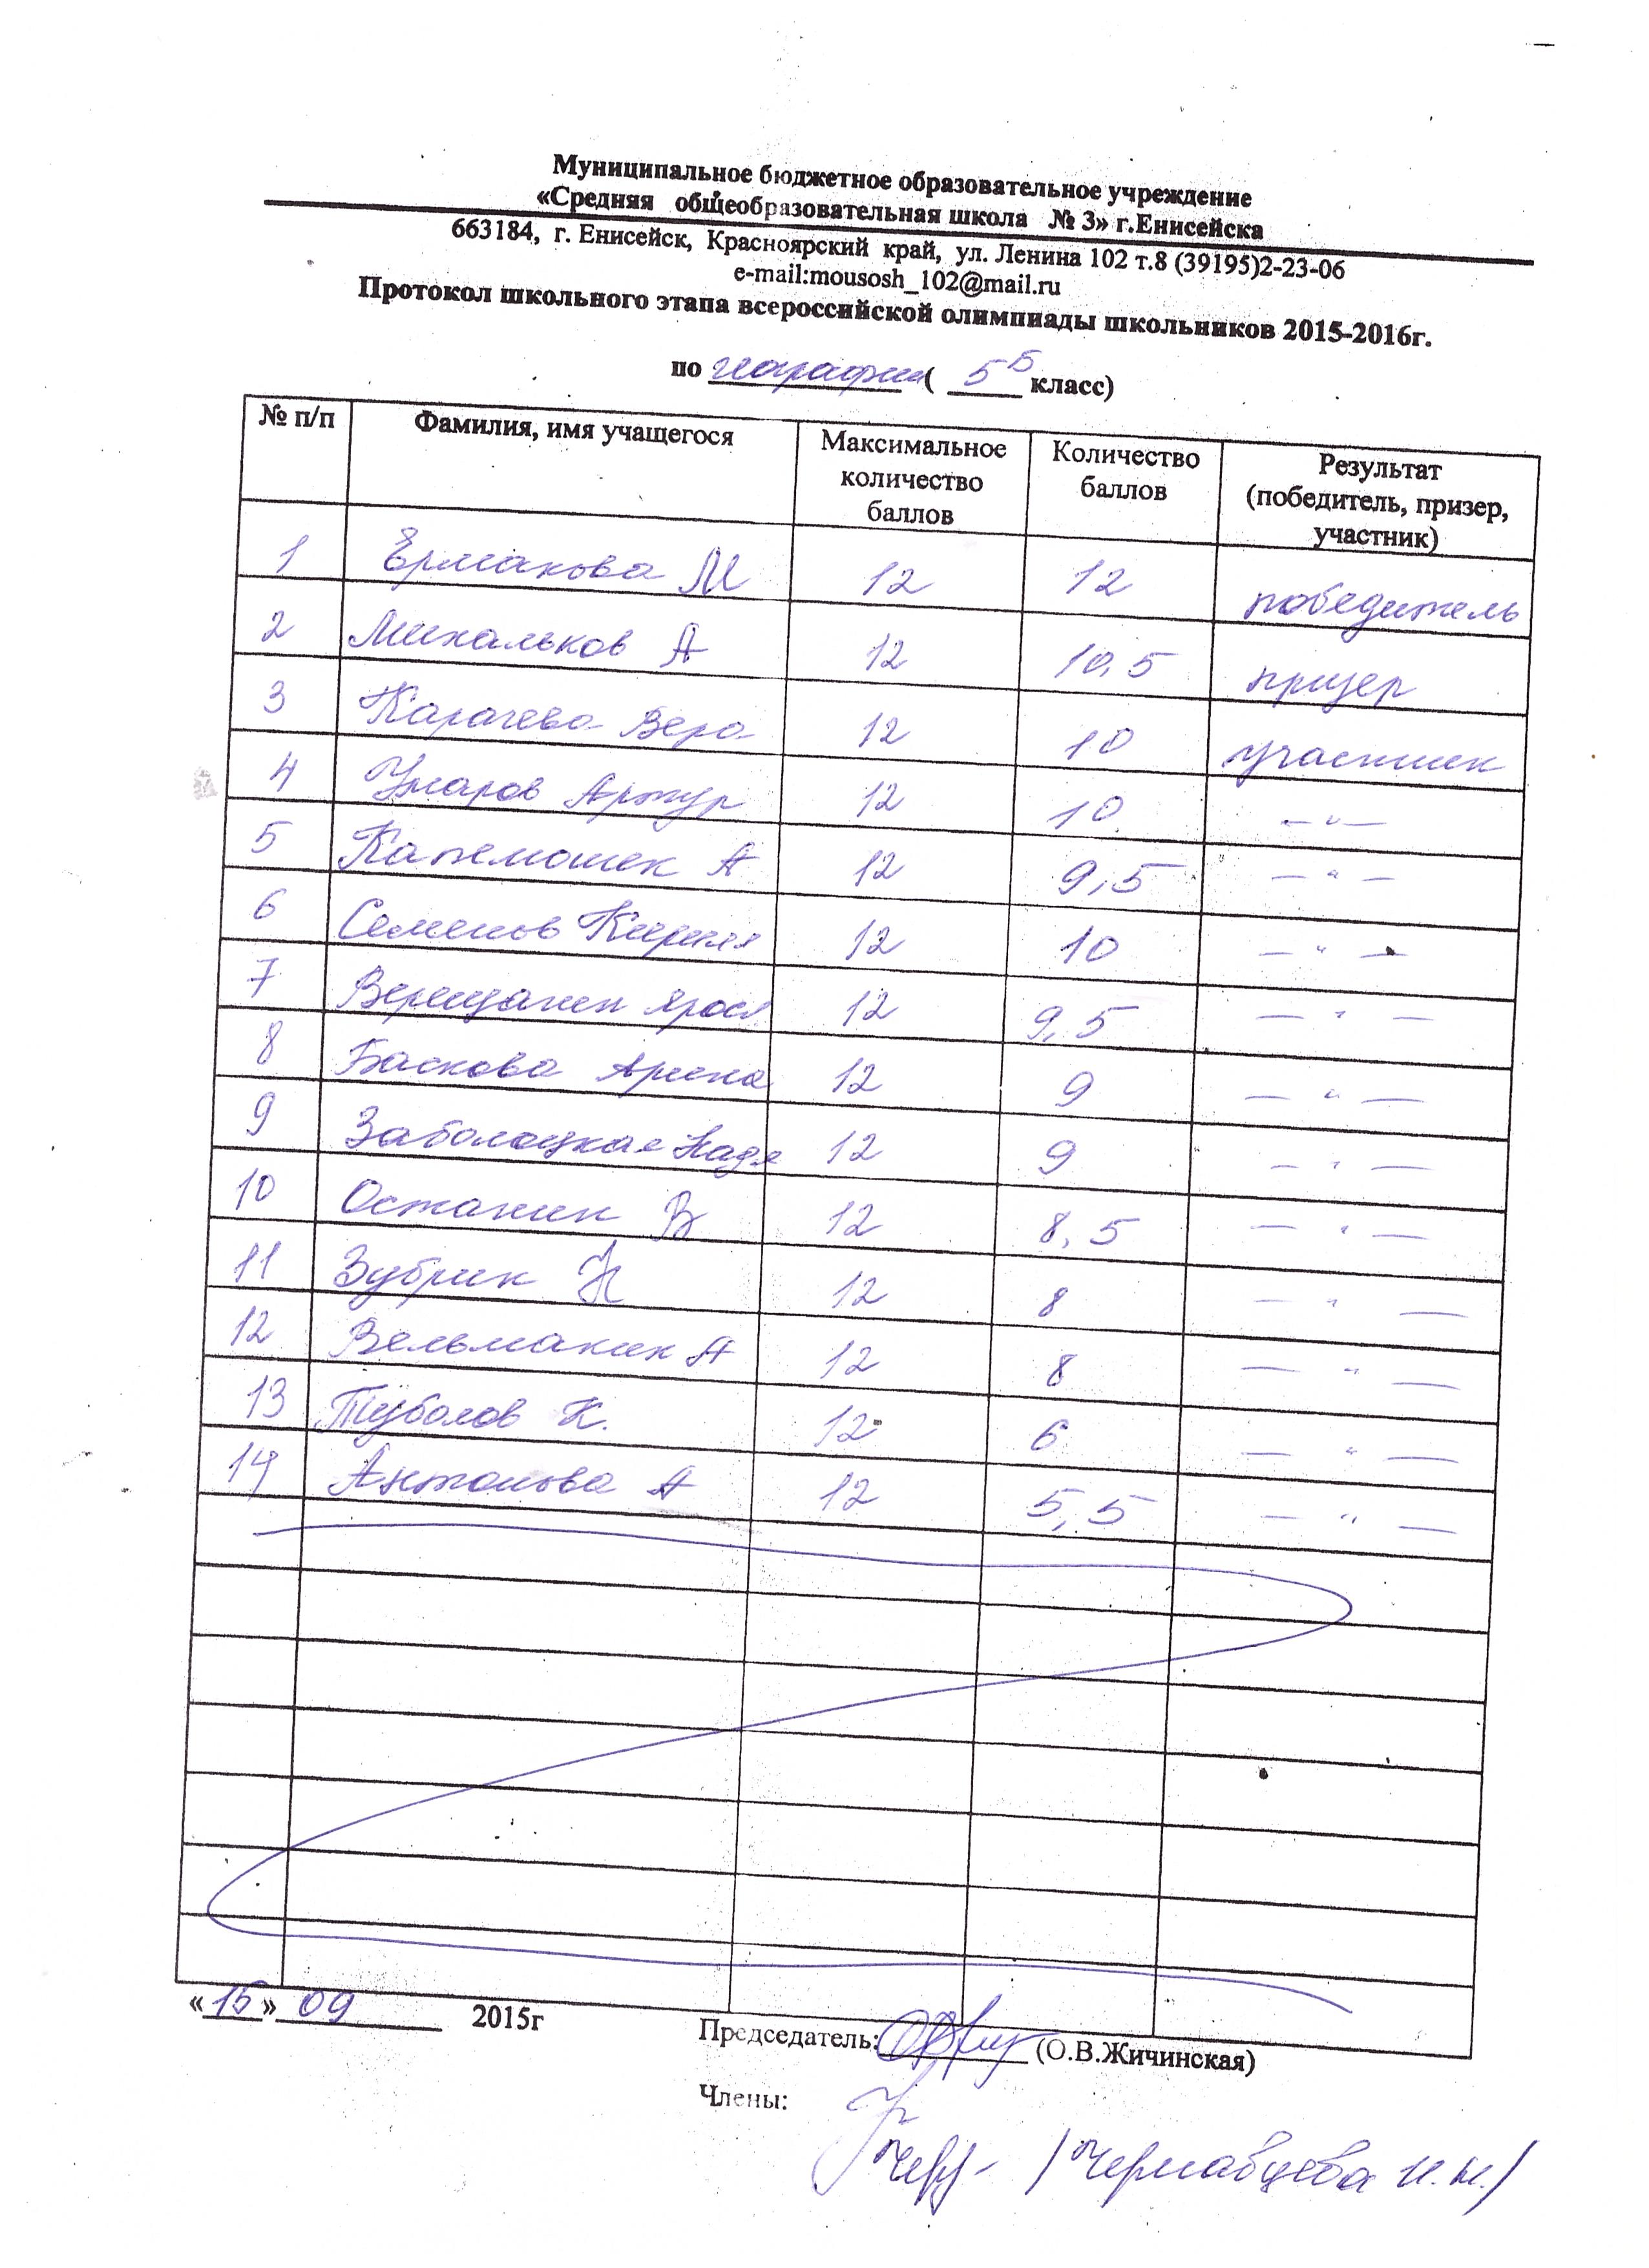 Муниципальное бюджетное образовательное учреждение
«Средняя общеобразовательная школа № 3» г.Енисейска
663184, г. Енисейск, Красноярский край, ул. Ленина 102 т.8 (39195)2-23-06
e-mail:mousosh_102@mail.ru
Протокол школьного этапа всероссийской олимпиады школьников 2015-2016г.
по географии ( 5 Б класс)
№ п/п Фамилия, имя учащегося Максимальное количество баллов Количество баллов Результат (победитель, призер, участник)
1 Ермакова М 12 12 победитель
2 Михальков А 12 10,5 призер
3 Карачева Вера 12 10 участник
4 Умаров Артур 12 10 — " —
5 А 12 9,5 — " —
6 Семенов Кирилл 12 10 — " —
7 Верещагин Яросл 12 9,5 — " —
8 Баскова Арина 12 9 — " —
9 Заболоцкая Надя 12 9 — " —
10 Останин В 12 8,5 — " —
11 Зубрик 12 8 — " —
12 Вельмакин А 12 8 — " —
13 Туболов К. 12 6 — " —
14 Антонова А 12 5,5 — " —
«15» 09 2015г
Председатель: (О.В.Жичинская)
Члены:
/Чернавцева Н.Н./